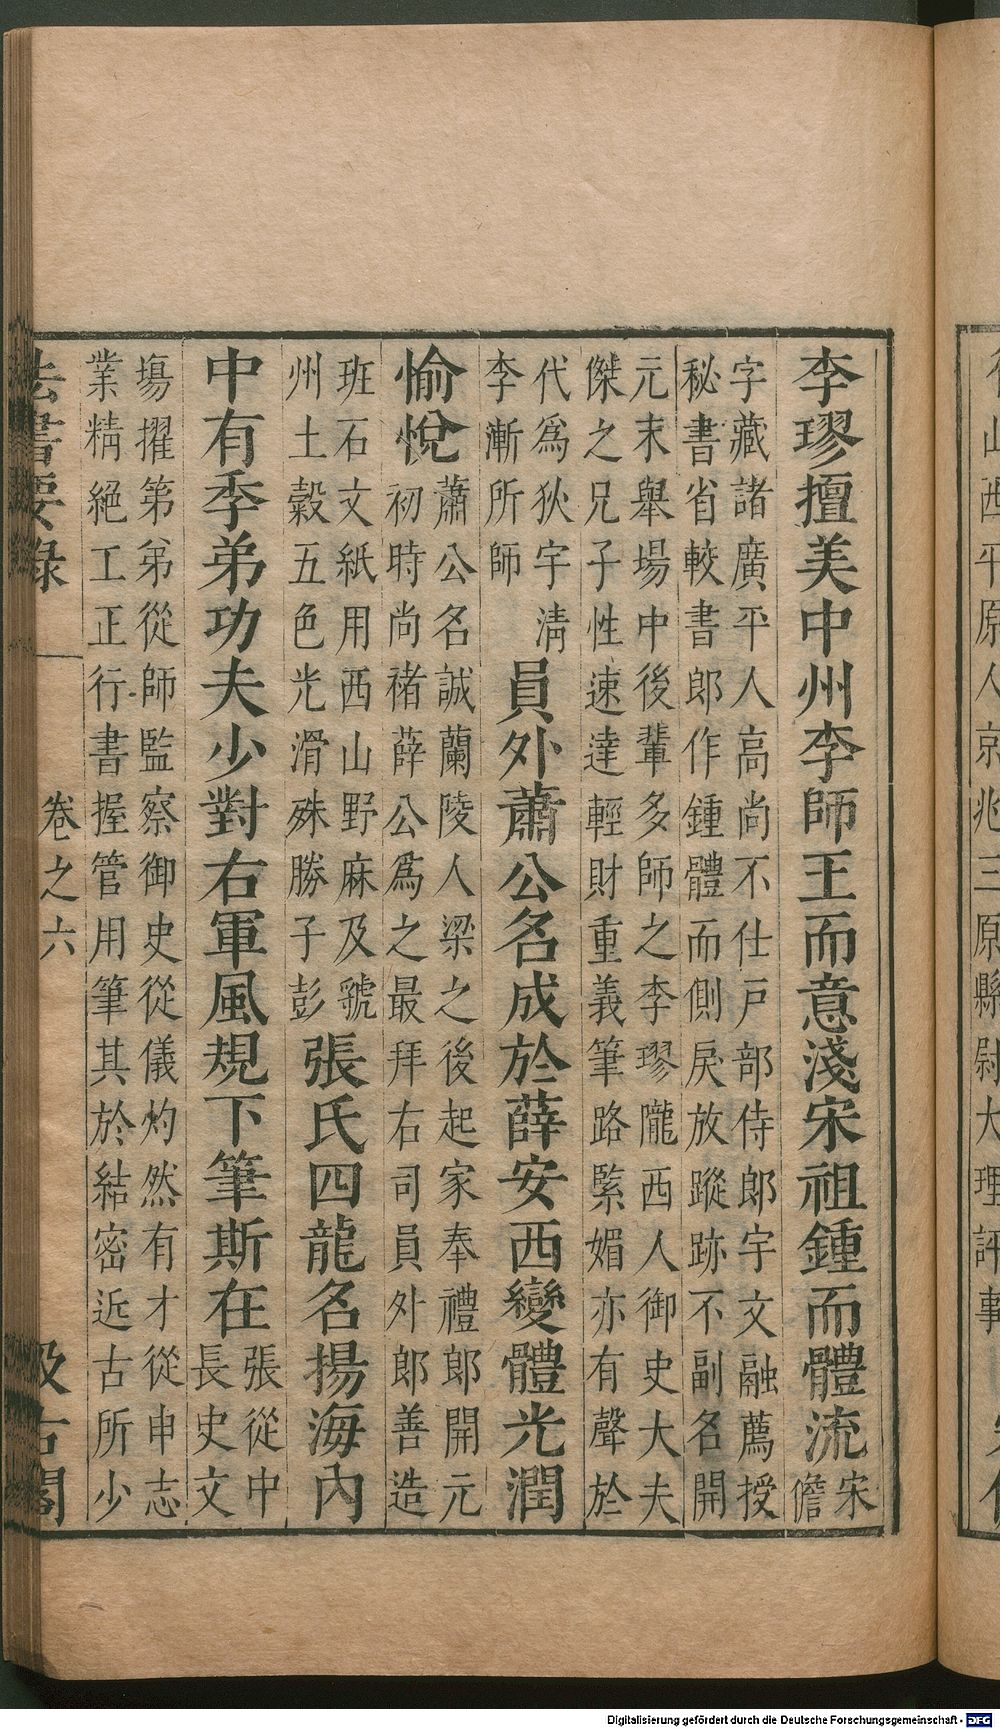 李璆擅美中州李師王而意淺宋祖鍾而體流宋儋
字藏諸廣平人高尚不仕戸部侍郎宇文融薦授
秘書省較書郎作鍾體而側戾放蹤跡不副名開
元末舉場中後輩多師之李璆隴西人御史大夫
傑之兄子性速達輕財重義筆路緊媚亦有聲於
代為狄宇清
李漸所師
員外蕭公名成於薛安西變體光潤
愉悅
蕭公名誠蘭陵人梁之後起家奉禮郎開元
初時尚褚薛公為之最拜右司員外郎善造
班石文紙用西山野麻及虢
州土穀五色光滑殊勝子彭
張氏四龍名揚海內
中有季弟功夫少對右軍風規下筆斯在
張從中
長史文
場擢第弟從師監察御史從儀灼然有才從申志
業精絕工正行書握管用筆其於結密近古所少
法書要錄
卷之六
汲古閣
Digitalisierung gefördert durch die Deutsche Forschungsgemeinschaft - DFG